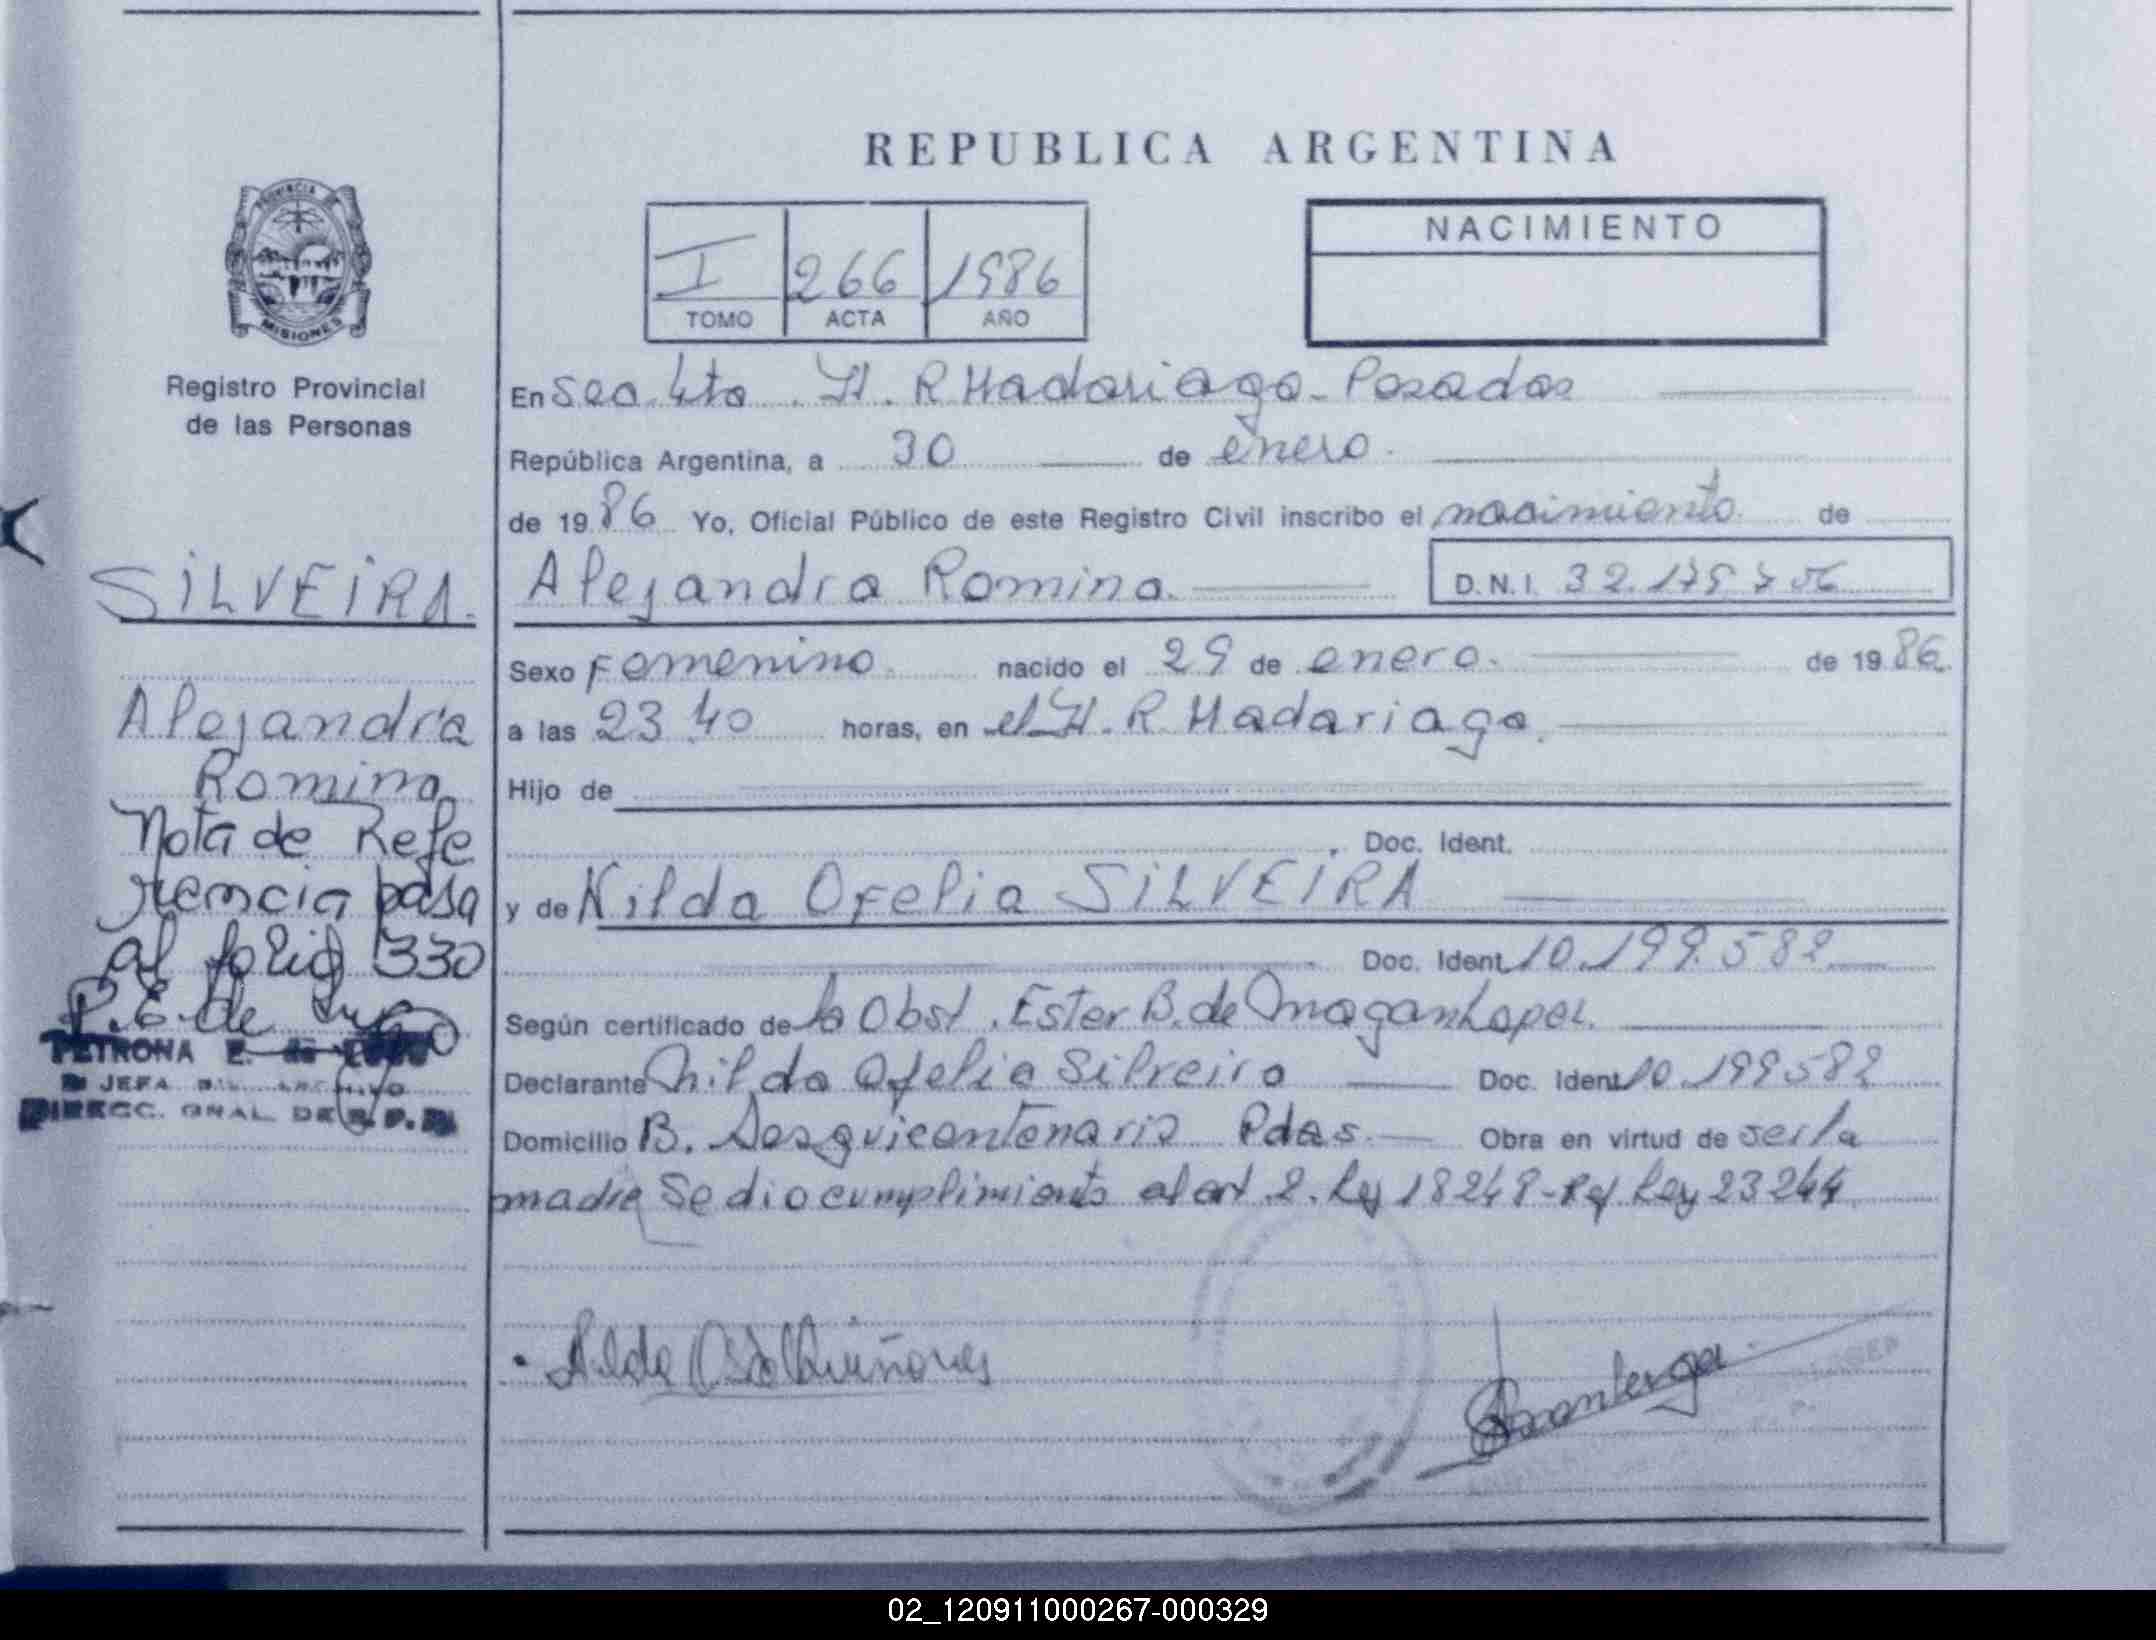 REPUBLICA ARGENTINA
PROVINCIA DE
MISIONES
Registro Provincial
de las Personas
I 266 1986
TOMO ACTA AÑO
NACIMIENTO
En Sec. 4ta. H. R Madariaga - Posadas
República Argentina, a 30 de enero.
de 1986 Yo, Oficial Público de este Registro Civil inscribo el nacimiento de
Alejandra Romina.
D.N.I. 32.175.756
Sexo Femenino. nacido el 29 de enero. de 1986
a las 23 40 horas, en el H. R Madariaga.
Hijo de
Doc. Ident.
y de Nilda Ofelia SiLVEiRA
Doc. Ident 10.199.582
Según certificado de la Obst. Ester B. de
Declarante Nilda Ofelia Silveira Doc. Ident 10.199582
Domicilio B. Sesquicentenario Pdas. Obra en virtud de ser la
madre Se dio cumplimiento al art. 2. Ley 18248-Ref Ley 23264
SiLVEiRA.
Alejandra
Romina
Nota de Refe
rencia pasa
al folio 330
P.E. de Lugo
PETRONA E. de LUGO
JEFA ARCHIVO
DIRECC. GRAL. DE R. P. P.
02_120911000267-000329